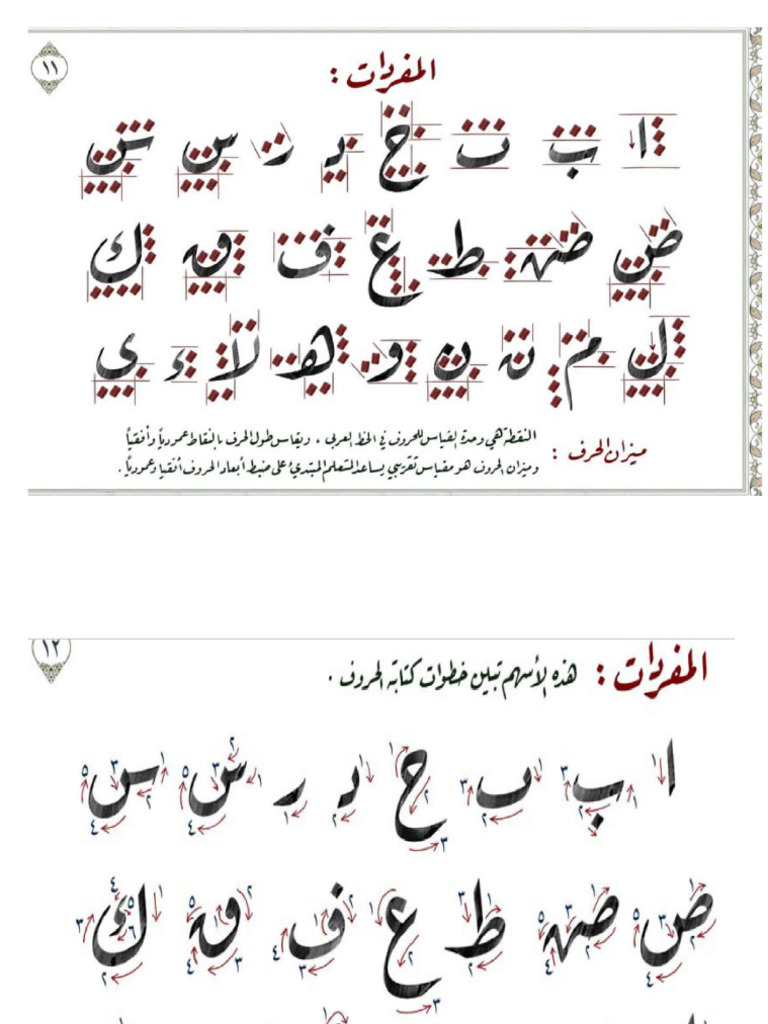 ١١
المفردات :
ا ب ت ج د ر س س
ض ضـ ط ع ف ق ك
ك م ن ن و هـ لا ء ي
ميزان الحرف : النقطة هي وحدة القياس للحروف في الخط العربي ، ويقاس طول الحرف بالنقاط عمودياً وأفقياً
وميزان الحروف هو مقياس تقريبي يساعد المتعلم المبتدئ على ضبط أبعاد الحروف أفقياً وعمودياً .
١٢
المفردات : هذه الأسهم تبين خطوات كتابة الحروف .
ا ب ں ح د ر س س
ص صـ ط ع ف ق ك